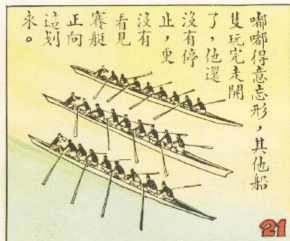 嘟嘟得意忘形，其他船
隻玩完走開
了，他還
沒有停
止，更
沒有
看見
賽艇
正向
這划
來。
21